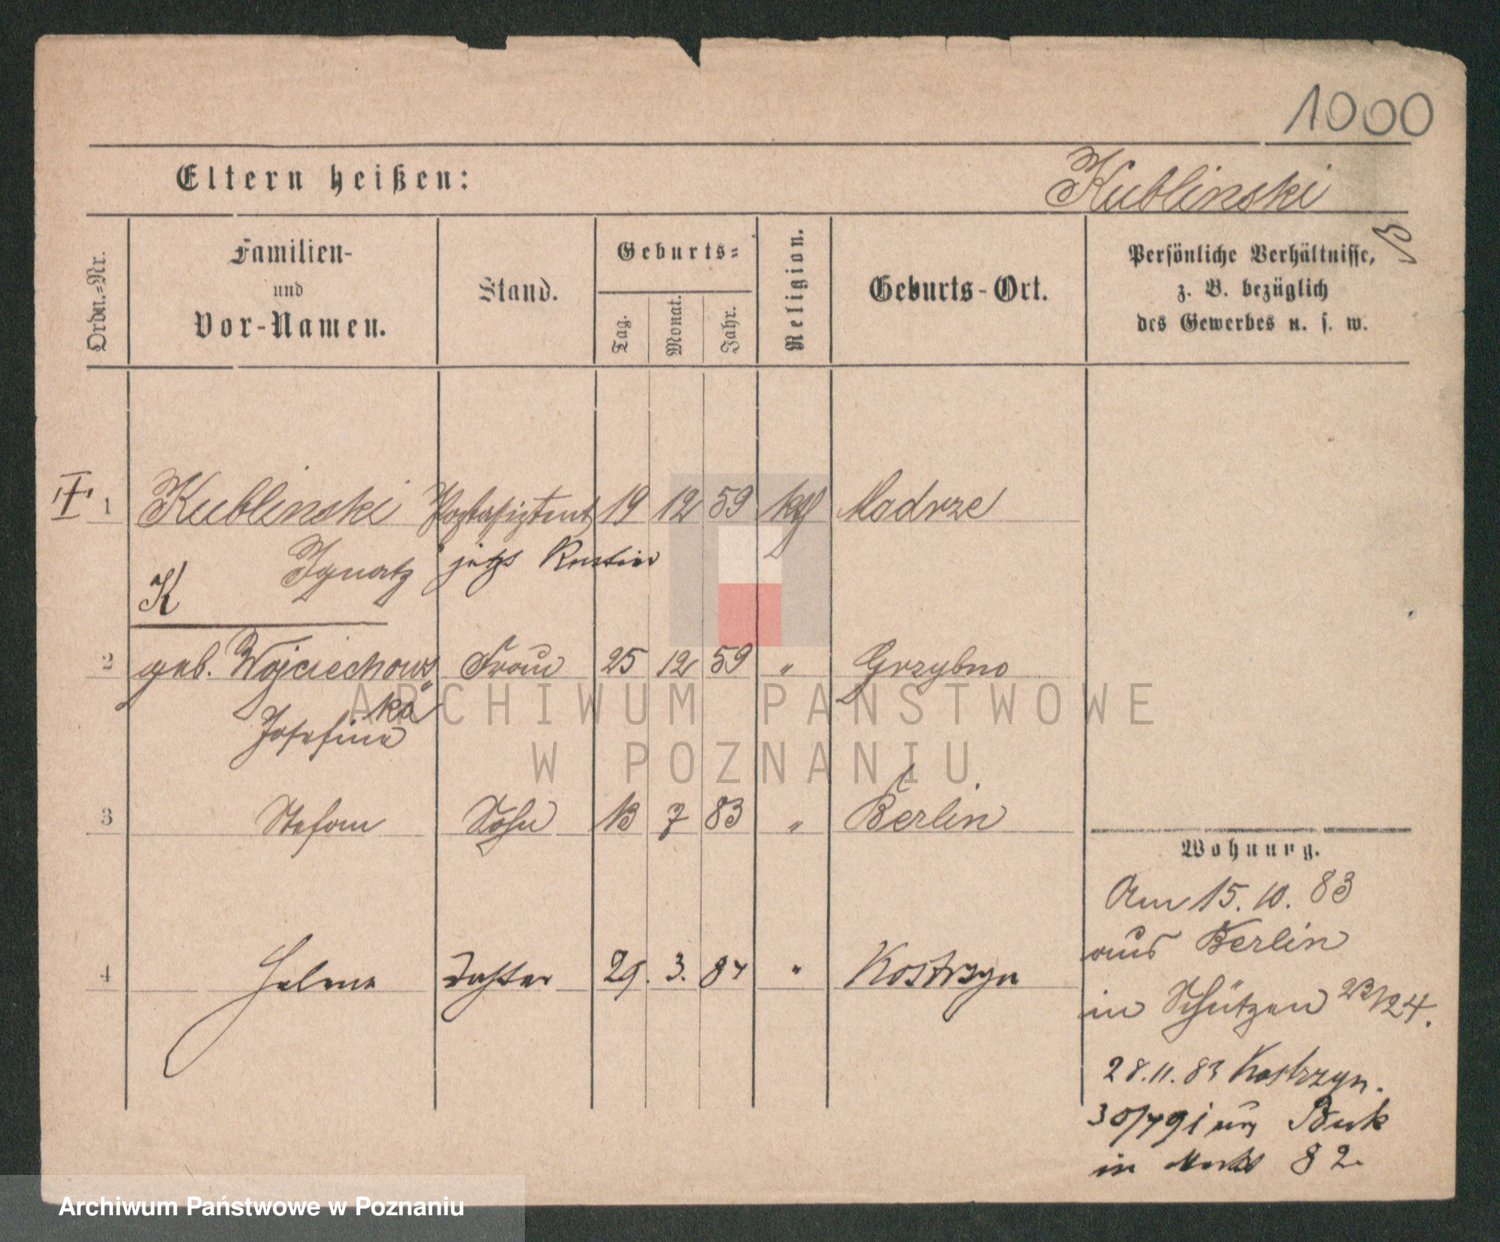 1000
Eltern heißen:
Kublinski
Ordn.-Nr.
Familien-
und
Vor-Namen.
Stand.
Geburts-
Tag.
Monat.
Jahr.
Religion.
Geburts-Ort.
Persönliche Verhältnisse,
z. B. bezüglich
des Gewerbes u. s. w.
I 1 Kublinski Postassistent 19 12 59 kth Modrze
Ignatz jetzt Rentier
K
2 geb. Wojciechows Frau 25 12 59 " Grzybno
ka
Josefina
3 Stefan Sohn 13 7 83 " Berlin
4 Helene Tochter 29. 3. 87 " Kostrzyn
Wohnung.
Am 15. 10. 83
aus Berlin
in Schützen 23/24.
28. 11. 83 Kostrzyn.
30/7 91 Buk
in 82
ARCHIWUM PAŃSTWOWE
W POZNANIU
Archiwum Państwowe w Poznaniu